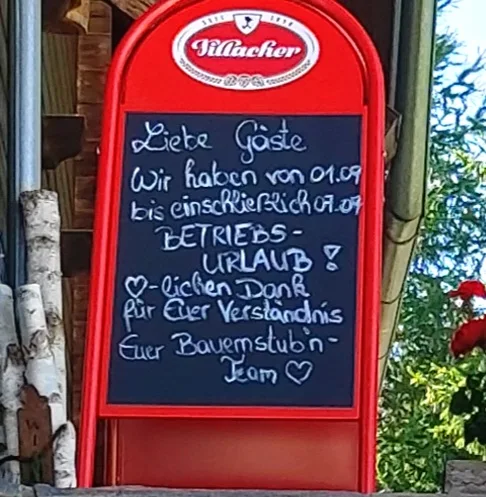 SEIT 1858
Villacher
Liebe Gäste
Wir haben von 01.09
bis einschließlich 07.09
BETRIEBS-
URLAUB !
♡-lichen Dank
für Euer Verständnis
Euer Bauernstub'n-
Team ♡